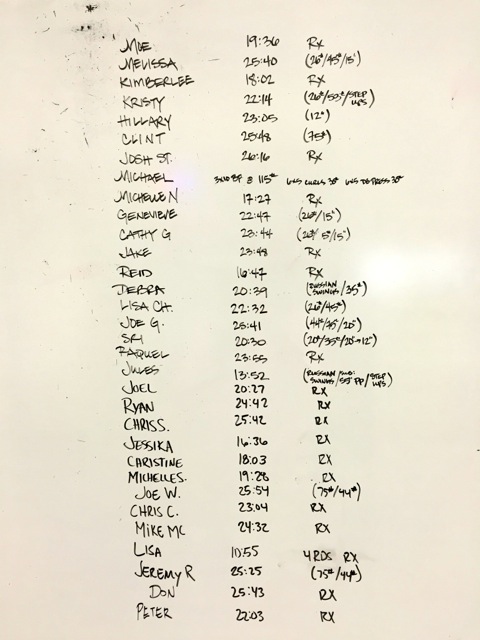 MOE 19:36 RX
MELISSA 25:40 (26#/45#/15")
KIMBERLEE 18:02 RX
KRISTY 22:14 (26#/55#/STEP UPS)
HILLARY 23:05 (12")
CLINT 25:48 (75#)
JOSH ST. 26:16 RX
MICHAEL BP @ 115# CURLS 30# PRESS 30#
MICHELLE N 17:27 RX
GENEVIEVE 22:47 (26#/15")
CATHY G 23:44
JAKE 23:48 RX
REID 16:47 RX
DEBRA 20:39 (RUSSIAN SWINGS/35#)
LISA CH. 22:32 (26#/45#)
JOE G. 25:41
SRI 20:30
RAQUEL 23:55 RX
JULES 13:52 (RUSSIAN SWINGS/55# PP/STEP UPS)
JOEL 20:27 RX
RYAN 24:42 RX
CHRIS S. 25:42 RX
JESSIKA 16:36 RX
CHRISTINE 18:03 RX
MICHELLE S. 19:28 RX
JOE W. 25:54 (75#/44#)
CHRIS C. 23:04 RX
MIKE MC 24:32 RX
LISA 10:55 4 RDS RX
JEREMY R 25:25 (75#/44#)
DON 25:43 RX
PETER 22:03 RX